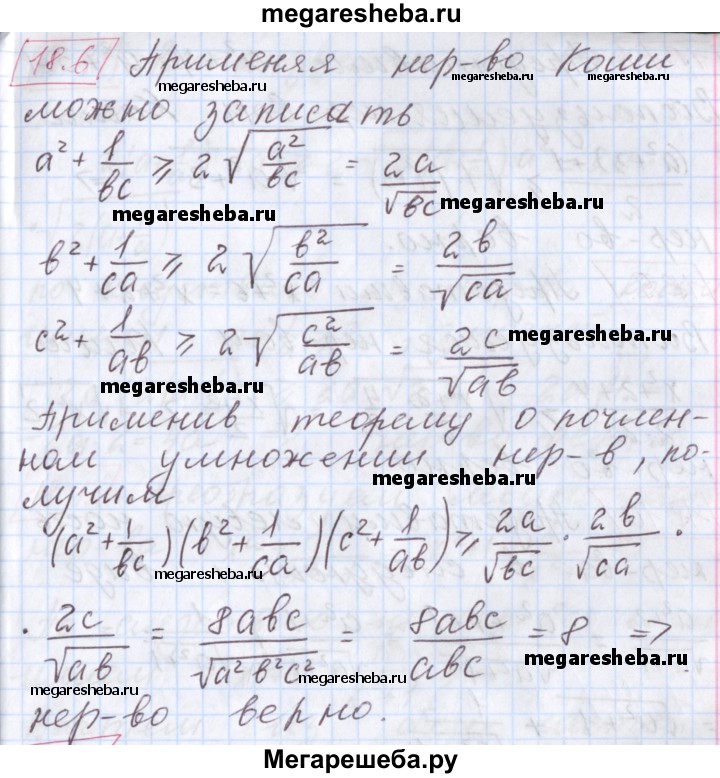 megaresheba.ru
18.6 Применяя нер-во Коши
megaresheba.ru megaresheba.ru megaresheba.ru
можно записать
a² + 1/bc ⩾ 2√(a²/bc) = 2a/√bc
megaresheba.ru megaresheba.ru
b² + 1/ca ⩾ 2√(b²/ca) = 2b/√ca
c² + 1/ab ⩾ 2√(c²/ab) = 2c/√ab
megaresheba.ru
megaresheba.ru
Применив теорему о почлен-
ном умножении нер-в, по-
megaresheba.ru
лучим
(a² + 1/bc)(b² + 1/ca)(c² + 1/ab) ⩾ 2a/√bc · 2b/√ca ·
megaresheba.ru
· 2c/√ab = 8abc/√a²b²c² = 8abc/abc = 8 =>
megaresheba.ru
megaresheba.ru megaresheba.ru
нер-во верно.
Мегарешеба.ру